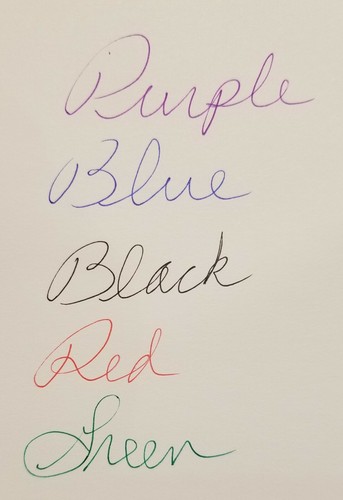 Purple
Blue
Black
Red
Green